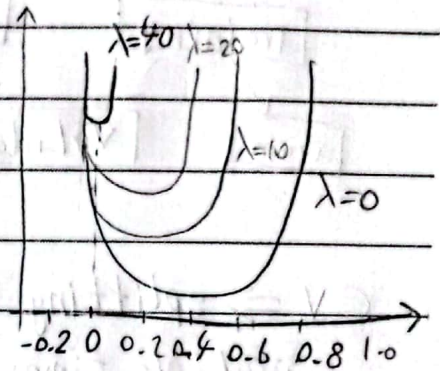 λ=40 λ=20
λ=10
λ=0
-0.2 0 0.2 0.4 0.6 0.8 1.0